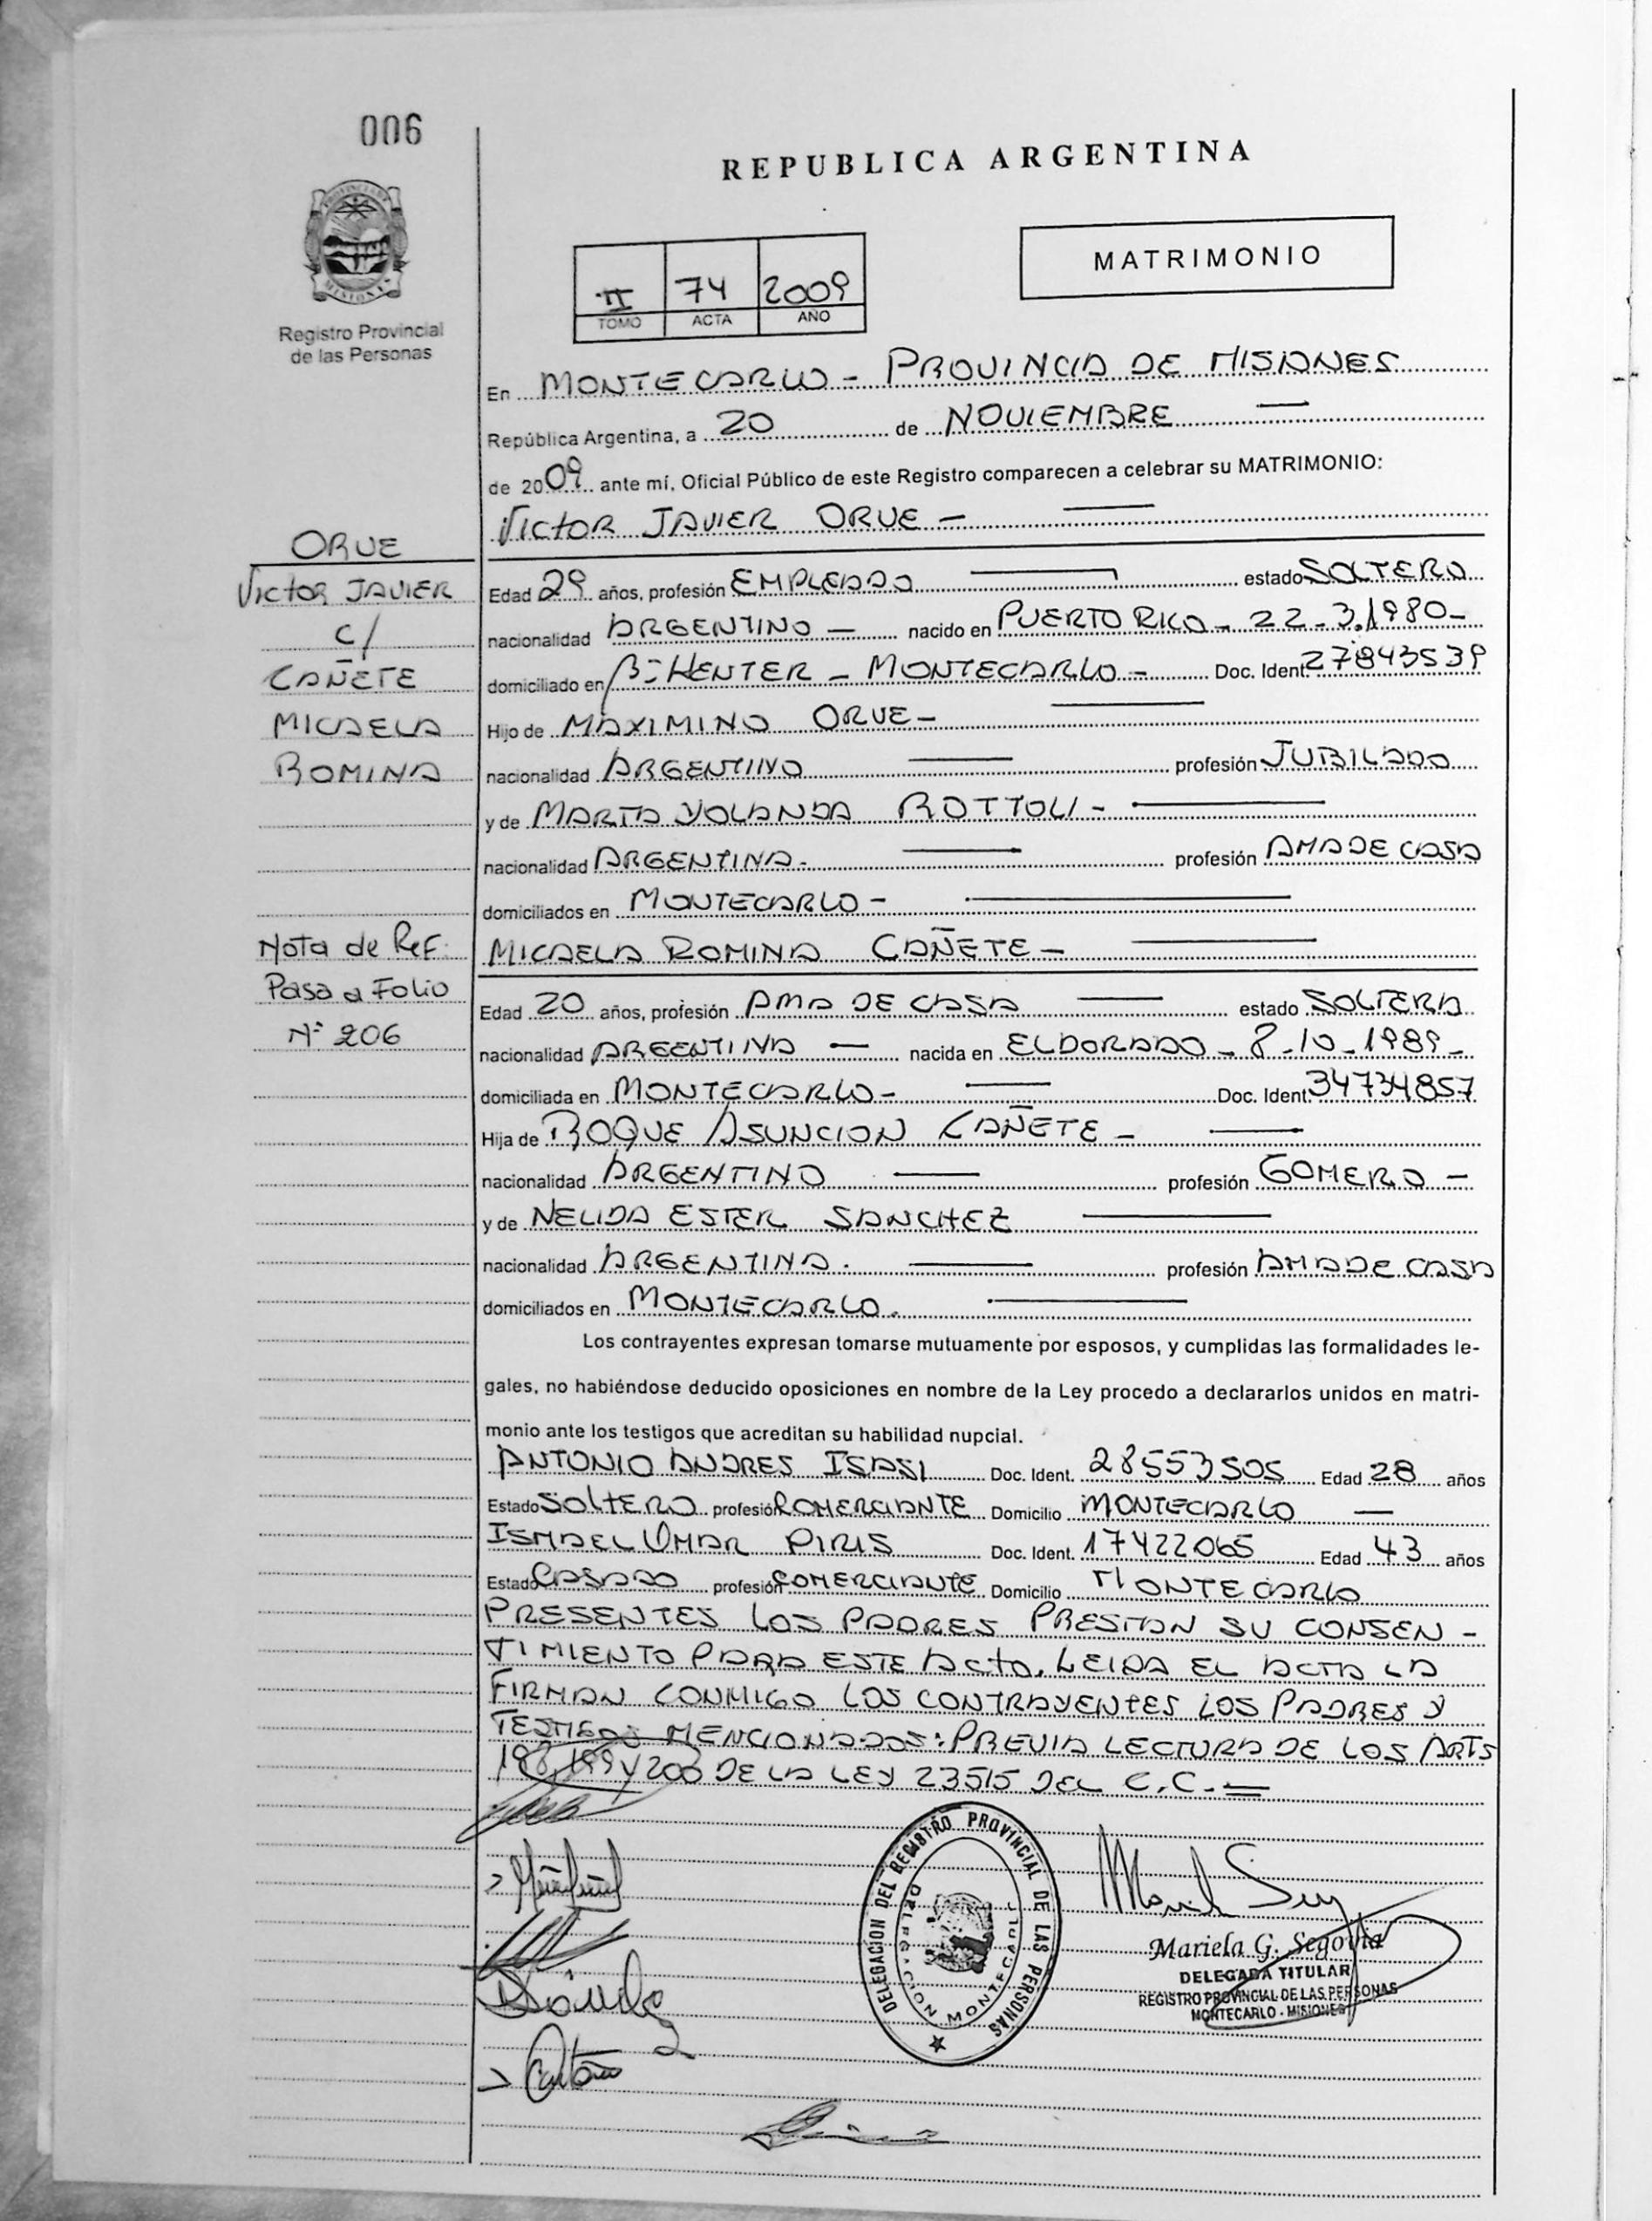 006
REPUBLICA ARGENTINA
PROVINCIA DE
MISIONES
Registro Provincial
de las Personas
II 74 2009
TOMO ACTA AÑO
MATRIMONIO
En MONTECARLO - PROVINCIA DE MISIONES
República Argentina, a 20 de NOVIEMBRE —
de 2009 ante mí, Oficial Público de este Registro comparecen a celebrar su MATRIMONIO:
VICTOR JAVIER ORUE - —
ORUE
VICTOR JAVIER
C/
CAÑETE
MICAELA
ROMINA
Edad 29 años, profesión EMPLEADO — estado SOLTERO
nacionalidad ARGENTINO — nacido en PUERTO RICO - 22-3.1980-
domiciliado en B: HENTER - MONTECARLO - Doc. Ident. 27843539
Hijo de MAXIMINO ORUE - —
nacionalidad ARGENTINO — profesión JUBILADO
y de MARTA YOLANDA ROTTOLI - —
nacionalidad ARGENTINA. — profesión AMA DE CASA
domiciliados en MONTECARLO - —
Nota de Ref:
Pasa a Folio
N° 206
MICAELA ROMINA CAÑETE - —
Edad 20 años, profesión AMA DE CASA — estado SOLTERA
nacionalidad ARGENTINA — nacida en ELDORADO - 8-10-1989-
domiciliada en MONTECARLO - — Doc. Ident. 34734857
Hija de ROQUE ASUNCION CAÑETE - —
nacionalidad ARGENTINO — profesión GOMERO -
y de NELIDA ESTER SANCHEZ —
nacionalidad ARGENTINA. — profesión AMA DE CASA
domiciliados en MONTECARLO. —
Los contrayentes expresan tomarse mutuamente por esposos, y cumplidas las formalidades le-
gales, no habiéndose deducido oposiciones en nombre de la Ley procedo a declararlos unidos en matri-
monio ante los testigos que acreditan su habilidad nupcial.
ANTONIO ANDRES ISASI Doc. Ident. 28553505 Edad 28 años
Estado SOLTERO profesión COMERCIANTE Domicilio MONTECARLO —
ISMAEL OMAR PIRIS Doc. Ident. 17422065 Edad 43 años
Estado CASADO profesión COMERCIANTE Domicilio MONTECARLO
PRESENTES LOS PADRES PRESTAN SU CONSEN-
TIMIENTO PARA ESTE ACTO. LEIDA EL ACTA LA
FIRMAN CONMIGO LOS CONTRAYENTES LOS PADRES Y
TESTIGOS MENCIONADOS: PREVIA LECTURA DE LOS ARTS
198, 199 Y 200 DE LA LEY 23515 DEL C.C. =
DELEGACION DEL REGISTRO PROVINCIAL DE LAS PERSONAS
DELEGACION MONTECARLO
Mariela G. Segovia
DELEGADA TITULAR
REGISTRO PROVINCIAL DE LAS PERSONAS
MONTECARLO - MISIONES